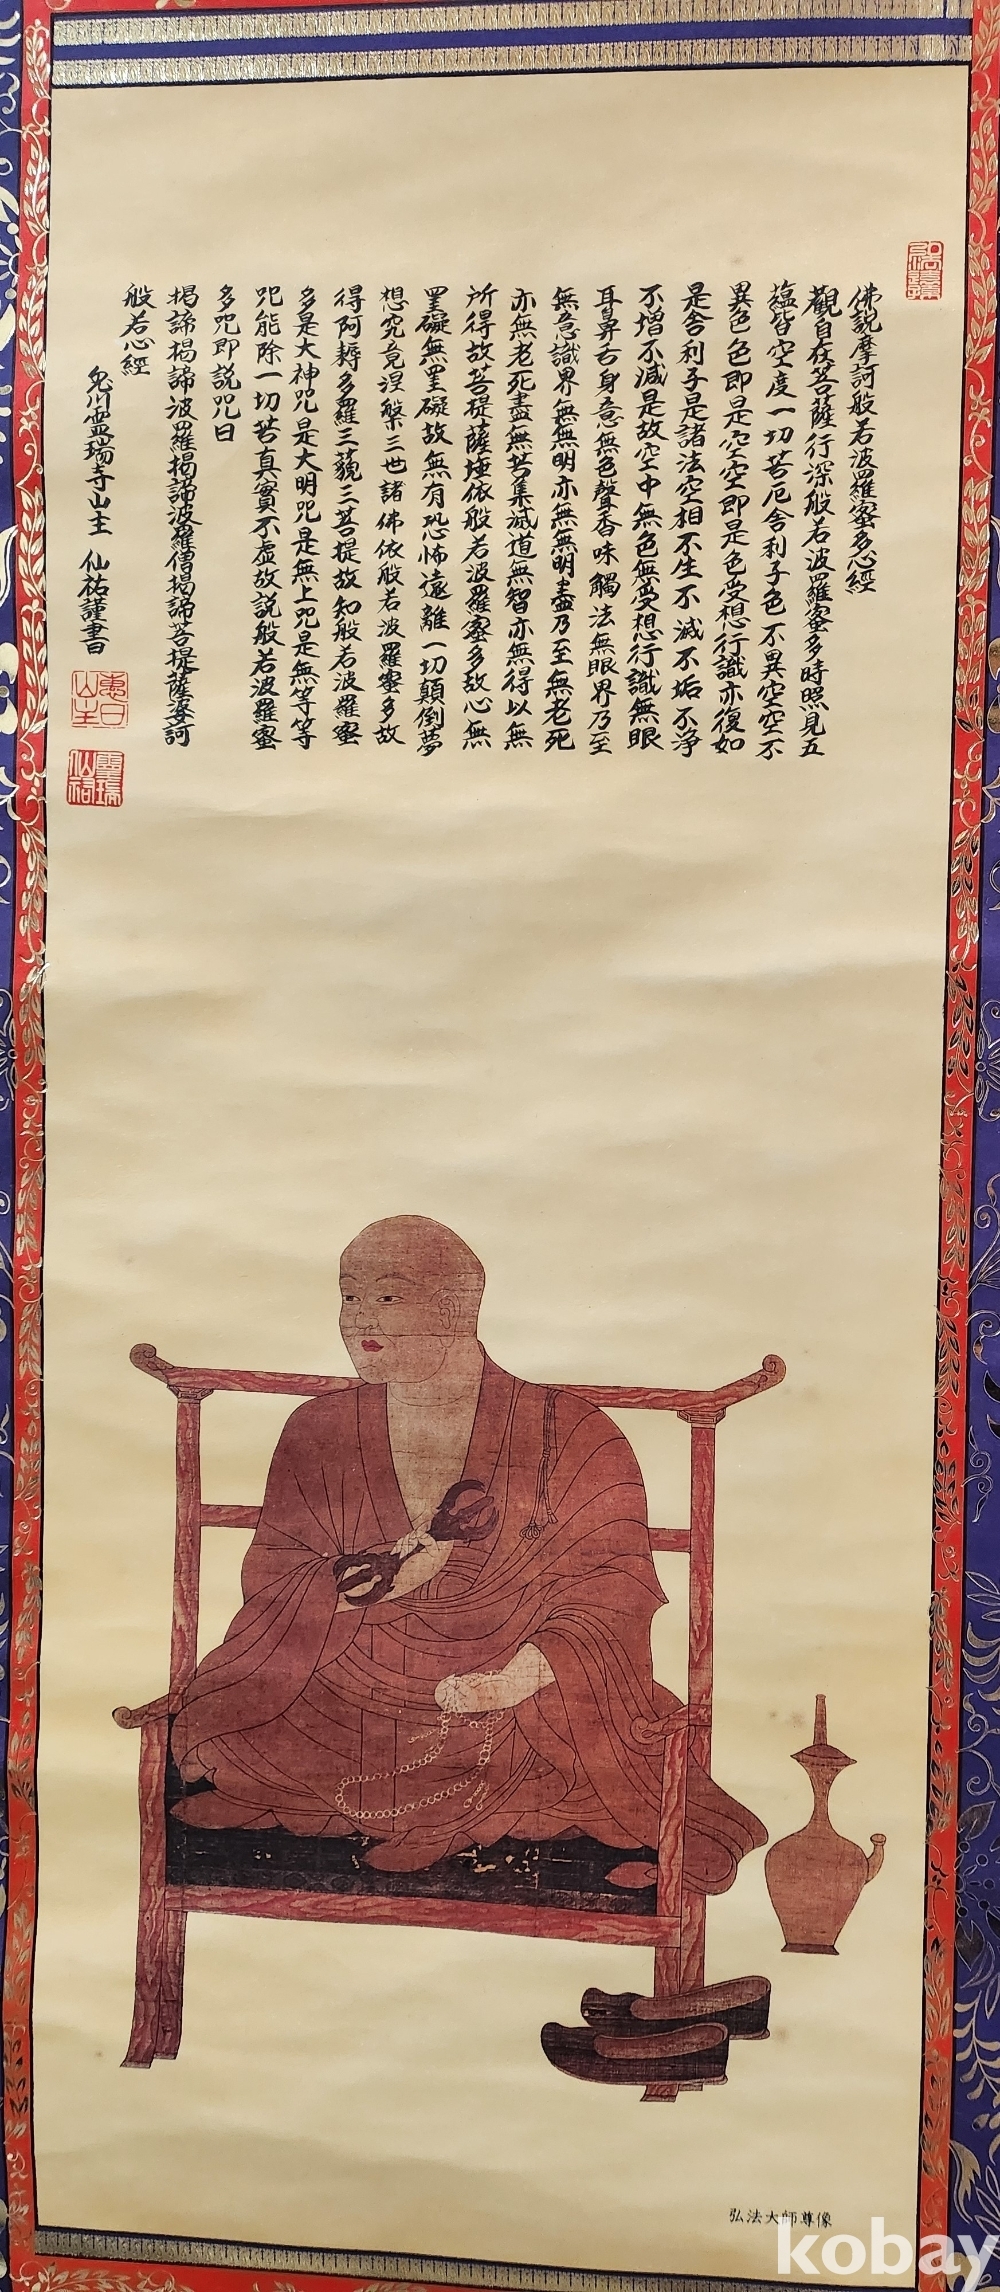 佛説摩訶般若波羅蜜多心經
觀自在菩薩行深般若波羅蜜多時照見五
蘊皆空度一切苦厄舍利子色不異空空不
異色色即是空空即是色受想行識亦復如
是舍利子是諸法空相不生不滅不垢不浄
不增不減是故空中無色無受想行識無眼
耳鼻舌身意無色聲香味觸法無眼界乃至
無意識界無無明亦無無明盡乃至無老死
亦無老死盡無苦集滅道無智亦無得以無
所得故菩提薩埵依般若波羅蜜多故心無
罣礙無罣礙故無有恐怖遠離一切顛倒夢
想究竟涅槃三世諸佛依般若波羅蜜多故
得阿耨多羅三藐三菩提故知般若波羅蜜
多是大神咒是大明咒是無上咒是無等等
咒能除一切苦真實不虚故説般若波羅蜜
多咒即説咒曰
揭諦揭諦波羅揭諦波羅僧揭諦菩提薩婆訶
般若心經
靈瑞寺山主 仙祐謹書
靈瑞
仙祐
弘法大師尊像
kobay